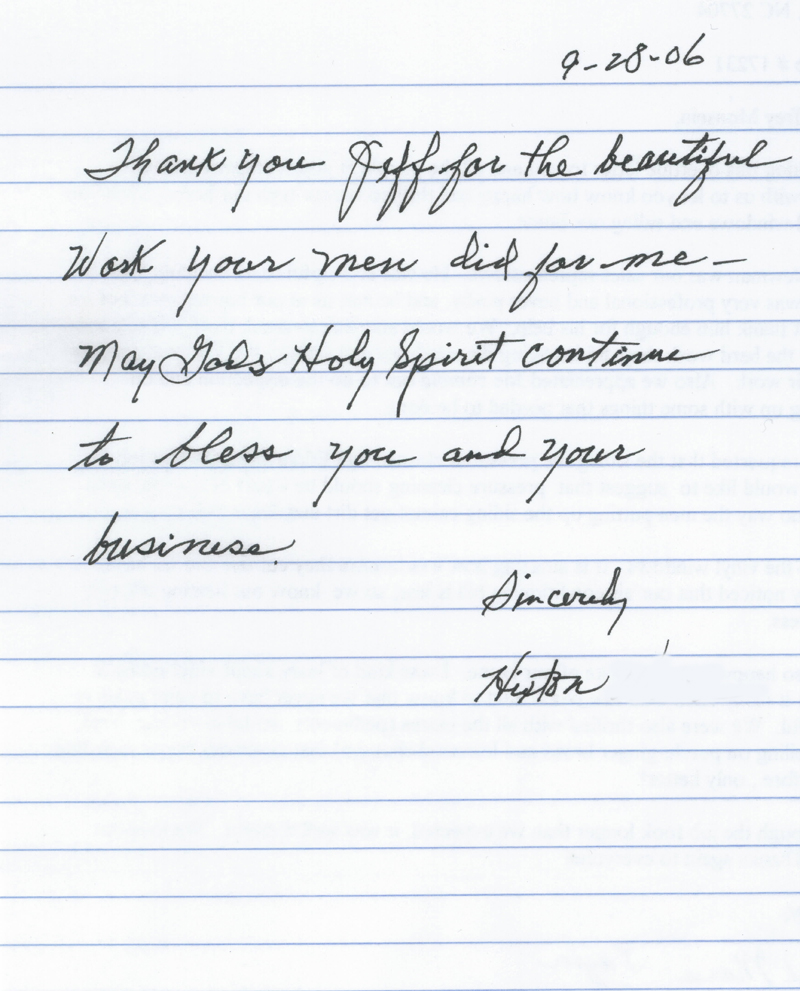 9-28-06
Thank you Jeff for the beautiful
Work your men did for me -
May Gods Holy Spirit continue
to bless you and your
business.
Sincerely